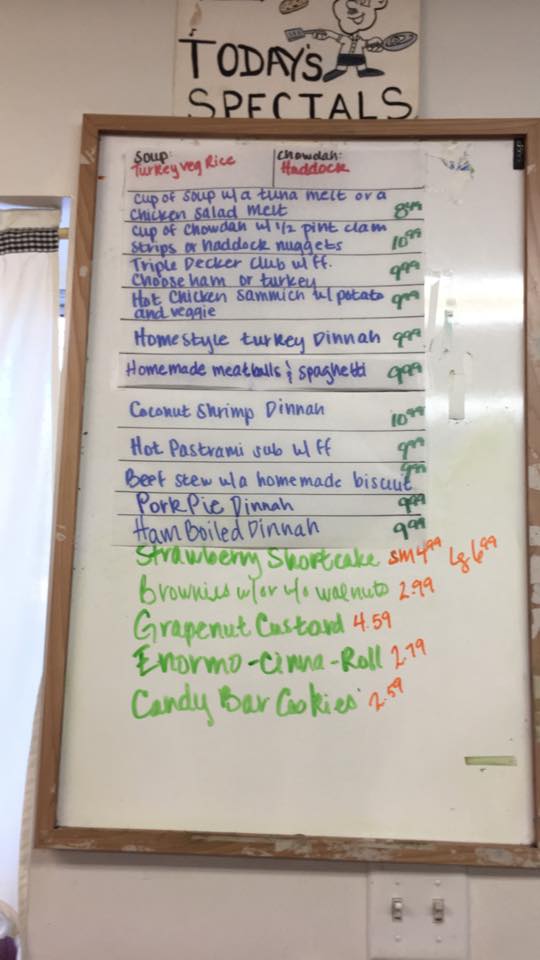 TODAY'S
SPECIALS
Soup: Chowdah:
Turkey Veg Rice Haddock
Cup of Soup w/a tuna melt or a
Chicken Salad melt 8.99
Cup of Chowdah w/ 1/2 pint clam
Strips or haddock nuggets 10.99
Triple Decker Club w/ ff.
Choose ham or turkey 9.99
Hot Chicken Sammich w/ potato
and veggie 9.99
Homestyle turkey Dinnah 9.99
Homemade meatballs & spaghetti 9.99
Coconut Shrimp Dinnah 10.99
Hot Pastrami sub w/ ff 9.99
Beef stew w/a homemade biscuit 9.99
Pork Pie Dinnah 9.99
Ham Boiled Dinnah 9.99
Strawberry Shortcake sm 4.99 Lg 6.99
Brownies w/or w/o walnuts 2.99
Grapenut Custard 4.59
Enormo-Cinna-Roll 2.79
Candy Bar Cookies 2.59